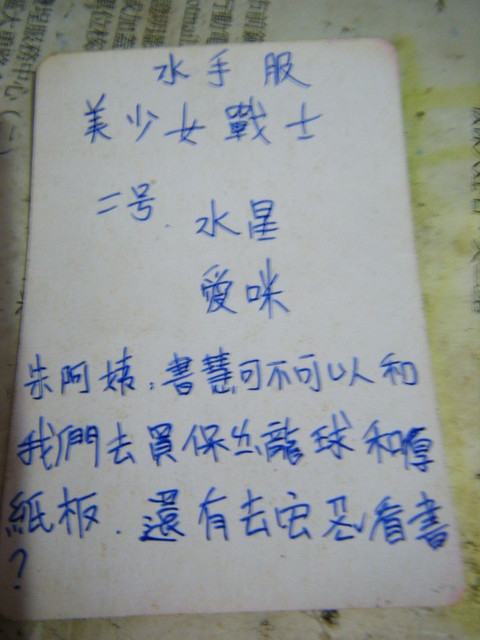 水手服
美少女戰士
二号 水星
愛咪
朱阿姨,書慧可不可以和
我們去買保丽龍球和厚
紙板.還有去看書
?